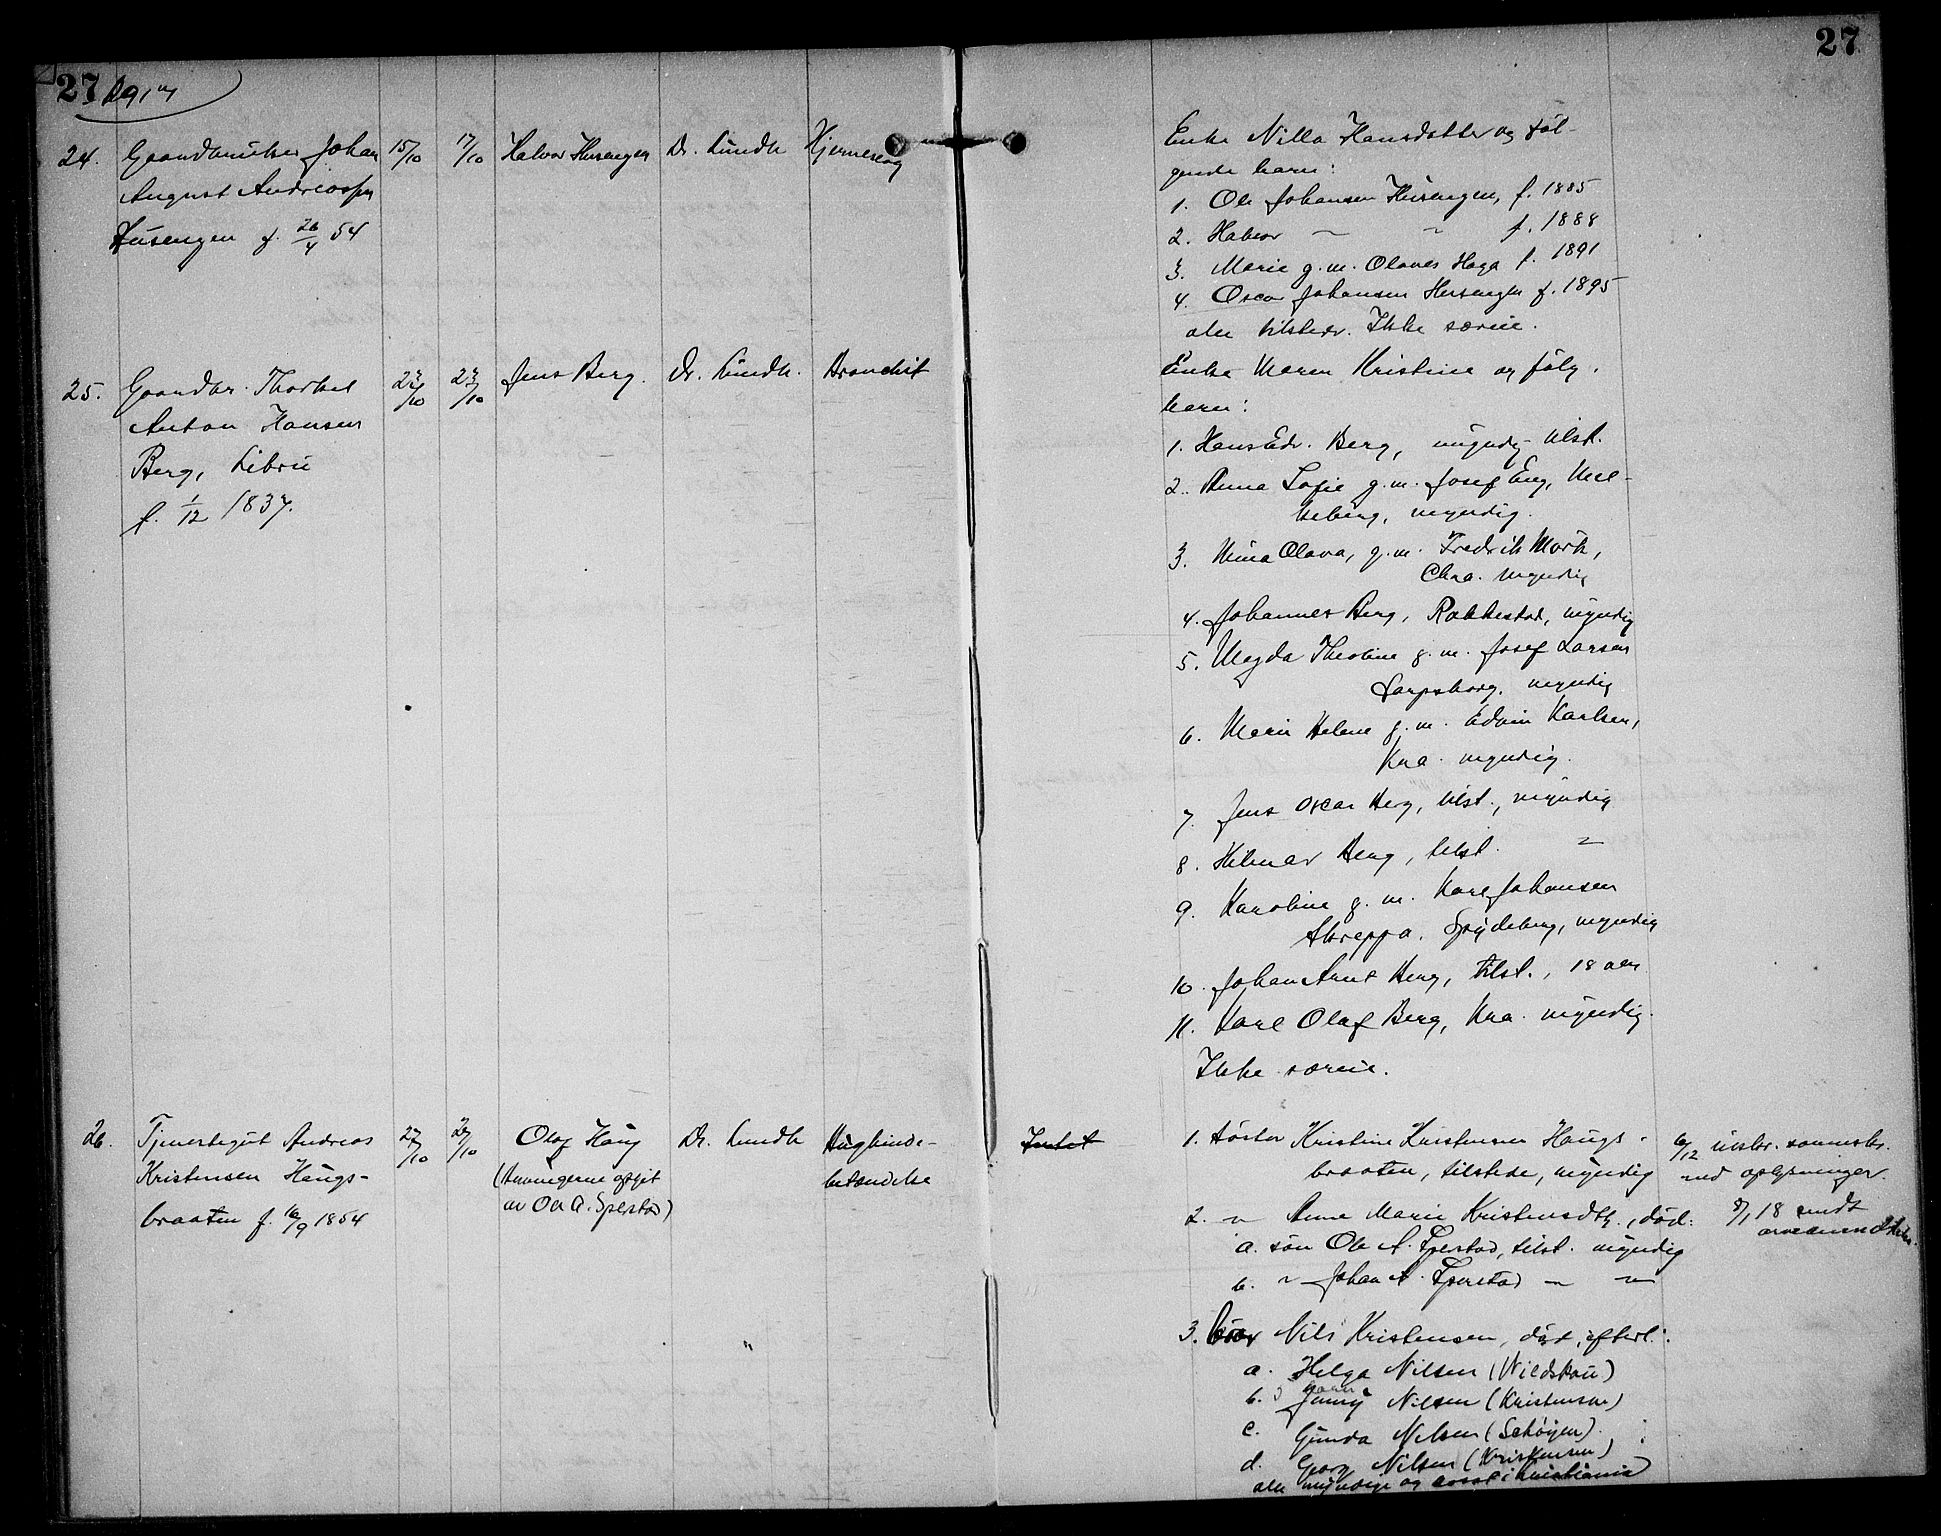 27 1917
24. Gaardbruker Johan 15/10 17/10 Halvor Husengen Dr. Lundh Hjerneslag
August Andreassen
Husengen f. 26/4 54
25. Gaardbr. Thorkel 22/10 23/10 Jens Berg. Dr. Lundh. Bronchit
Anton Hansen
Berg, Libru
f. 1/12 1837.
26. Tjenestegut Andreas 27/10 29/10 Olaf Haug Dr. Lundh Hughinde-
Kristensen Haugs- (Arvingerne opgit betændelse
braaten f. 16/9 1854 av Ole A. Sperstad)
27
Enke Nilla Hansdatter og føl-
gende barn:
1. Ole Johansen Husengen, f. 1885
2. Halvor — — f. 1888
3. Marie g.m. Olaves Haga f. 1891
4. Oscar Johansen Husengen f. 1895
alle tilstede. Ikke særeie.
Enke Maren Kristine og følg.
barn:
1. Hans Edv. Berg, myndig tilst.
2. Anna Sofie g.m. Josef Eng,
myndig.
3. Mina Olava, g.m. Fredrik Mørk,
Chra. myndig
4. Johannes Berg, Rakkestad, myndig
5. Magda Theoline g.m. Josef Larsen
Sarpsborg. myndig
6. Marie Helene g.m. Edvin Karlsen,
Kra. myndig.
7. Jens Oscar Berg, tilst., myndig
8. Hilmar Berg, tilst. —
9. Karoline g.m. Karl Johansen
Skreppa. Spydeberg, myndig
10. Johan Arnt Berg, tilst., 18 aar
11. Karl Olaf Berg, Kra. myndig.
Ikke særeie.
Intet 1. Søster Kristine Kristensen Haugs- 6/12 utstr. sommesbr.
braaten, tilstede, myndig med oplysninger.
2. — Anne Marie Kristensdtr., død: 8/1 18 sendt
a. søn Ole A. Sperstad, tilst. myndig
b. — Johan A. Sperstad — —
3. bror Nils Kristensen, død, efterl.:
a. Helga Nilsen (Wildskau)
b. Jenny Nilsen (Kristensen)
c. Gunda Nilsen (Schøyen)
d. Georg Nilsen (Kristensen)
alle myndige og bosat i Kristiania